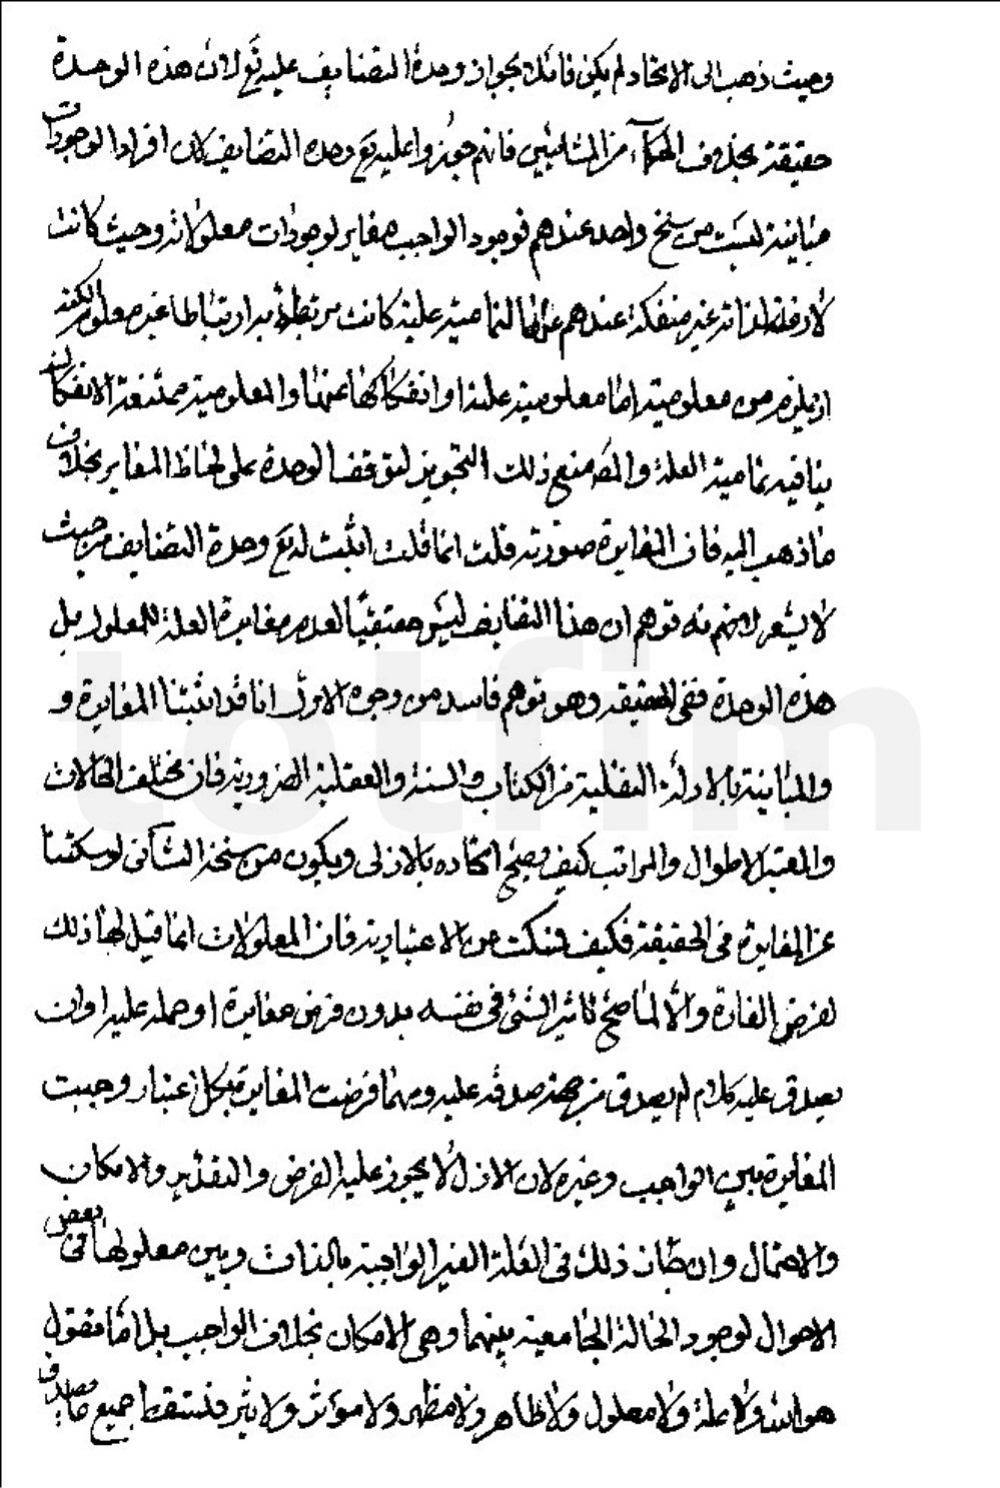 وحيث ذهب الى الاتحاد لم يكن قائلا بجواز وحدة التضايف عليه تع لان هذه الوحدة
حقيقة بخلاف الحكماء من المشائيين فانهم جوزوا عليه تع وحدة التضايف لان افراد الوجودات
متباينة ليست من سنخ واحد عندهم فوجود الواجب مغاير لوجودات معلولاته وحيث كانت
لازمة لذاته غير منفكة عندهم عن التمامية علية كانت مرتبطة به ارتباطا غير معلوم الكنه
اذ يلزم من معلوميته اما معلومية علية او انفكاكها عنها والمعلومية ممتنعة الانفكاك
ينافيه تمامية العلة والمص منع ذلك التجويز لتوقف الوحدة على لحاظ المغاير بخلاف
ما ذهب اليه فان المغايرة صورته قلت انما قلت اثبت له تع وحدة التضايف من حيث
لا يشعر لانهم منه توهم ان هذا التضايف ليس حقيقيا لعدم مغايرة العلة للمعلول بل
هذه الوحدة ففي الحقيقة وهو توهم فاسد من وجوه الاول انا قد اثبتنا المغايرة و
والمباينة بالادلة النقلية من الكتاب والسنة والعقلية الضرورية فان مختلف الحالات
والمعتبر الاطوال والمراتب كيف يصح اتحاده بالازلى ويكون من سنخه الثانى لو سكتنا
عن المغايرة في الحقيقة فكيف نسكت عن الاعتبارية فان المعلولات انما قيل لها ذلك
لفرض المغايرة والا لما صح تاثير الشئ في نفسه بدون فرض مغايرة او حمله عليه او ان
يصدق عليه كلام لم يصدق من جهة صدقه عليه ومهما فرضت المغايرة بكل اعتبار وجبت
المغايرة بين الواجب وغيره لان الازل لا يجوز عليه الفرض والتقدير والامكان
والاحتمال وان جاز ذلك في العلة الغير الواجبة بالذات وبين معلولها في بعض
الاحوال لوجود الحالة الجامعية بينهما وهي الامكان بخلاف الواجب بل اما مقول
هو الله ولا علة ولا معلول ولا ظاهر ولا مظهر ولا مؤثر ولا اثر فتسقط جميع ما يصدق
totfim